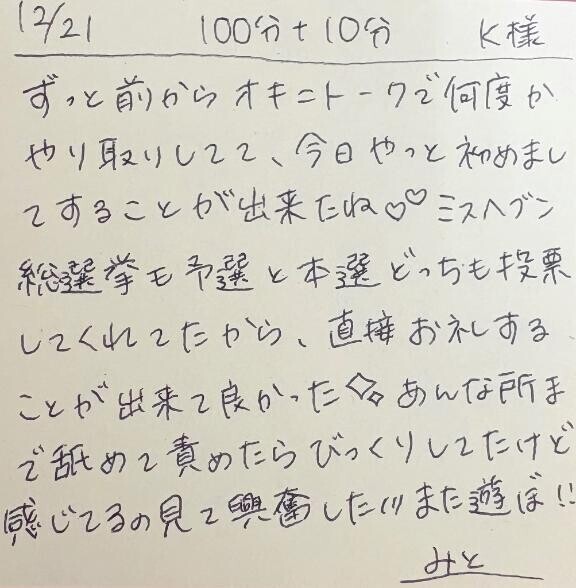 12/21 100分+10分 K様
ずっと前からオキニトークで何度か
やり取りしてて、今日やっと初めまし
てすることが出来たね♡♡ミスヘブン
総選挙も予選と本選どっちも投票
してくれてたから、直接お礼する
ことが出来て良かった✧✧あんな所ま
で舐めて責めたらびっくりしてたけど
感じてるの見て興奮した!!!また遊ぼ!!
みと